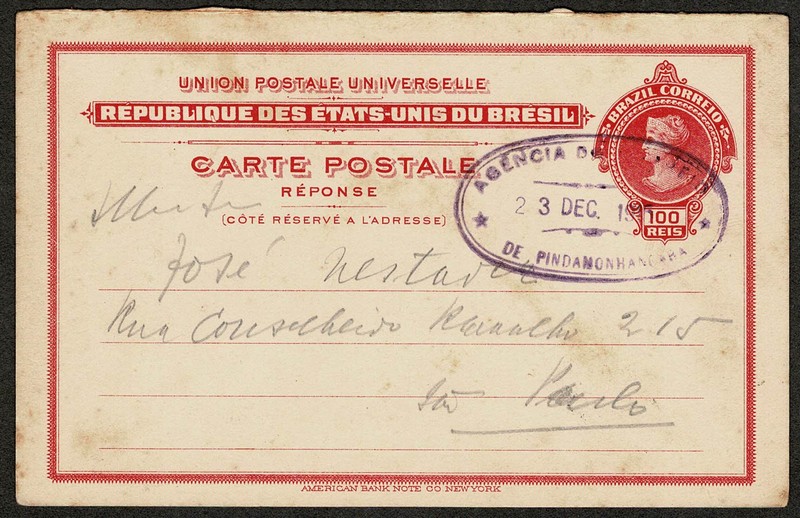 UNION POSTALE UNIVERSELLE
RÉPUBLIQUE DES ÉTATS-UNIS DU BRÉSIL
CARTE POSTALE
RÉPONSE
(CÔTÉ RÉSERVÉ A L'ADRESSE)
BRAZIL CORREIO
100
REIS
AGÊNCIA
23 DEC.
DE PINDAMONHANGABA
José
Rua Conselheiro Ramalho 215
São Paulo
AMERICAN BANK NOTE CO NEW YORK